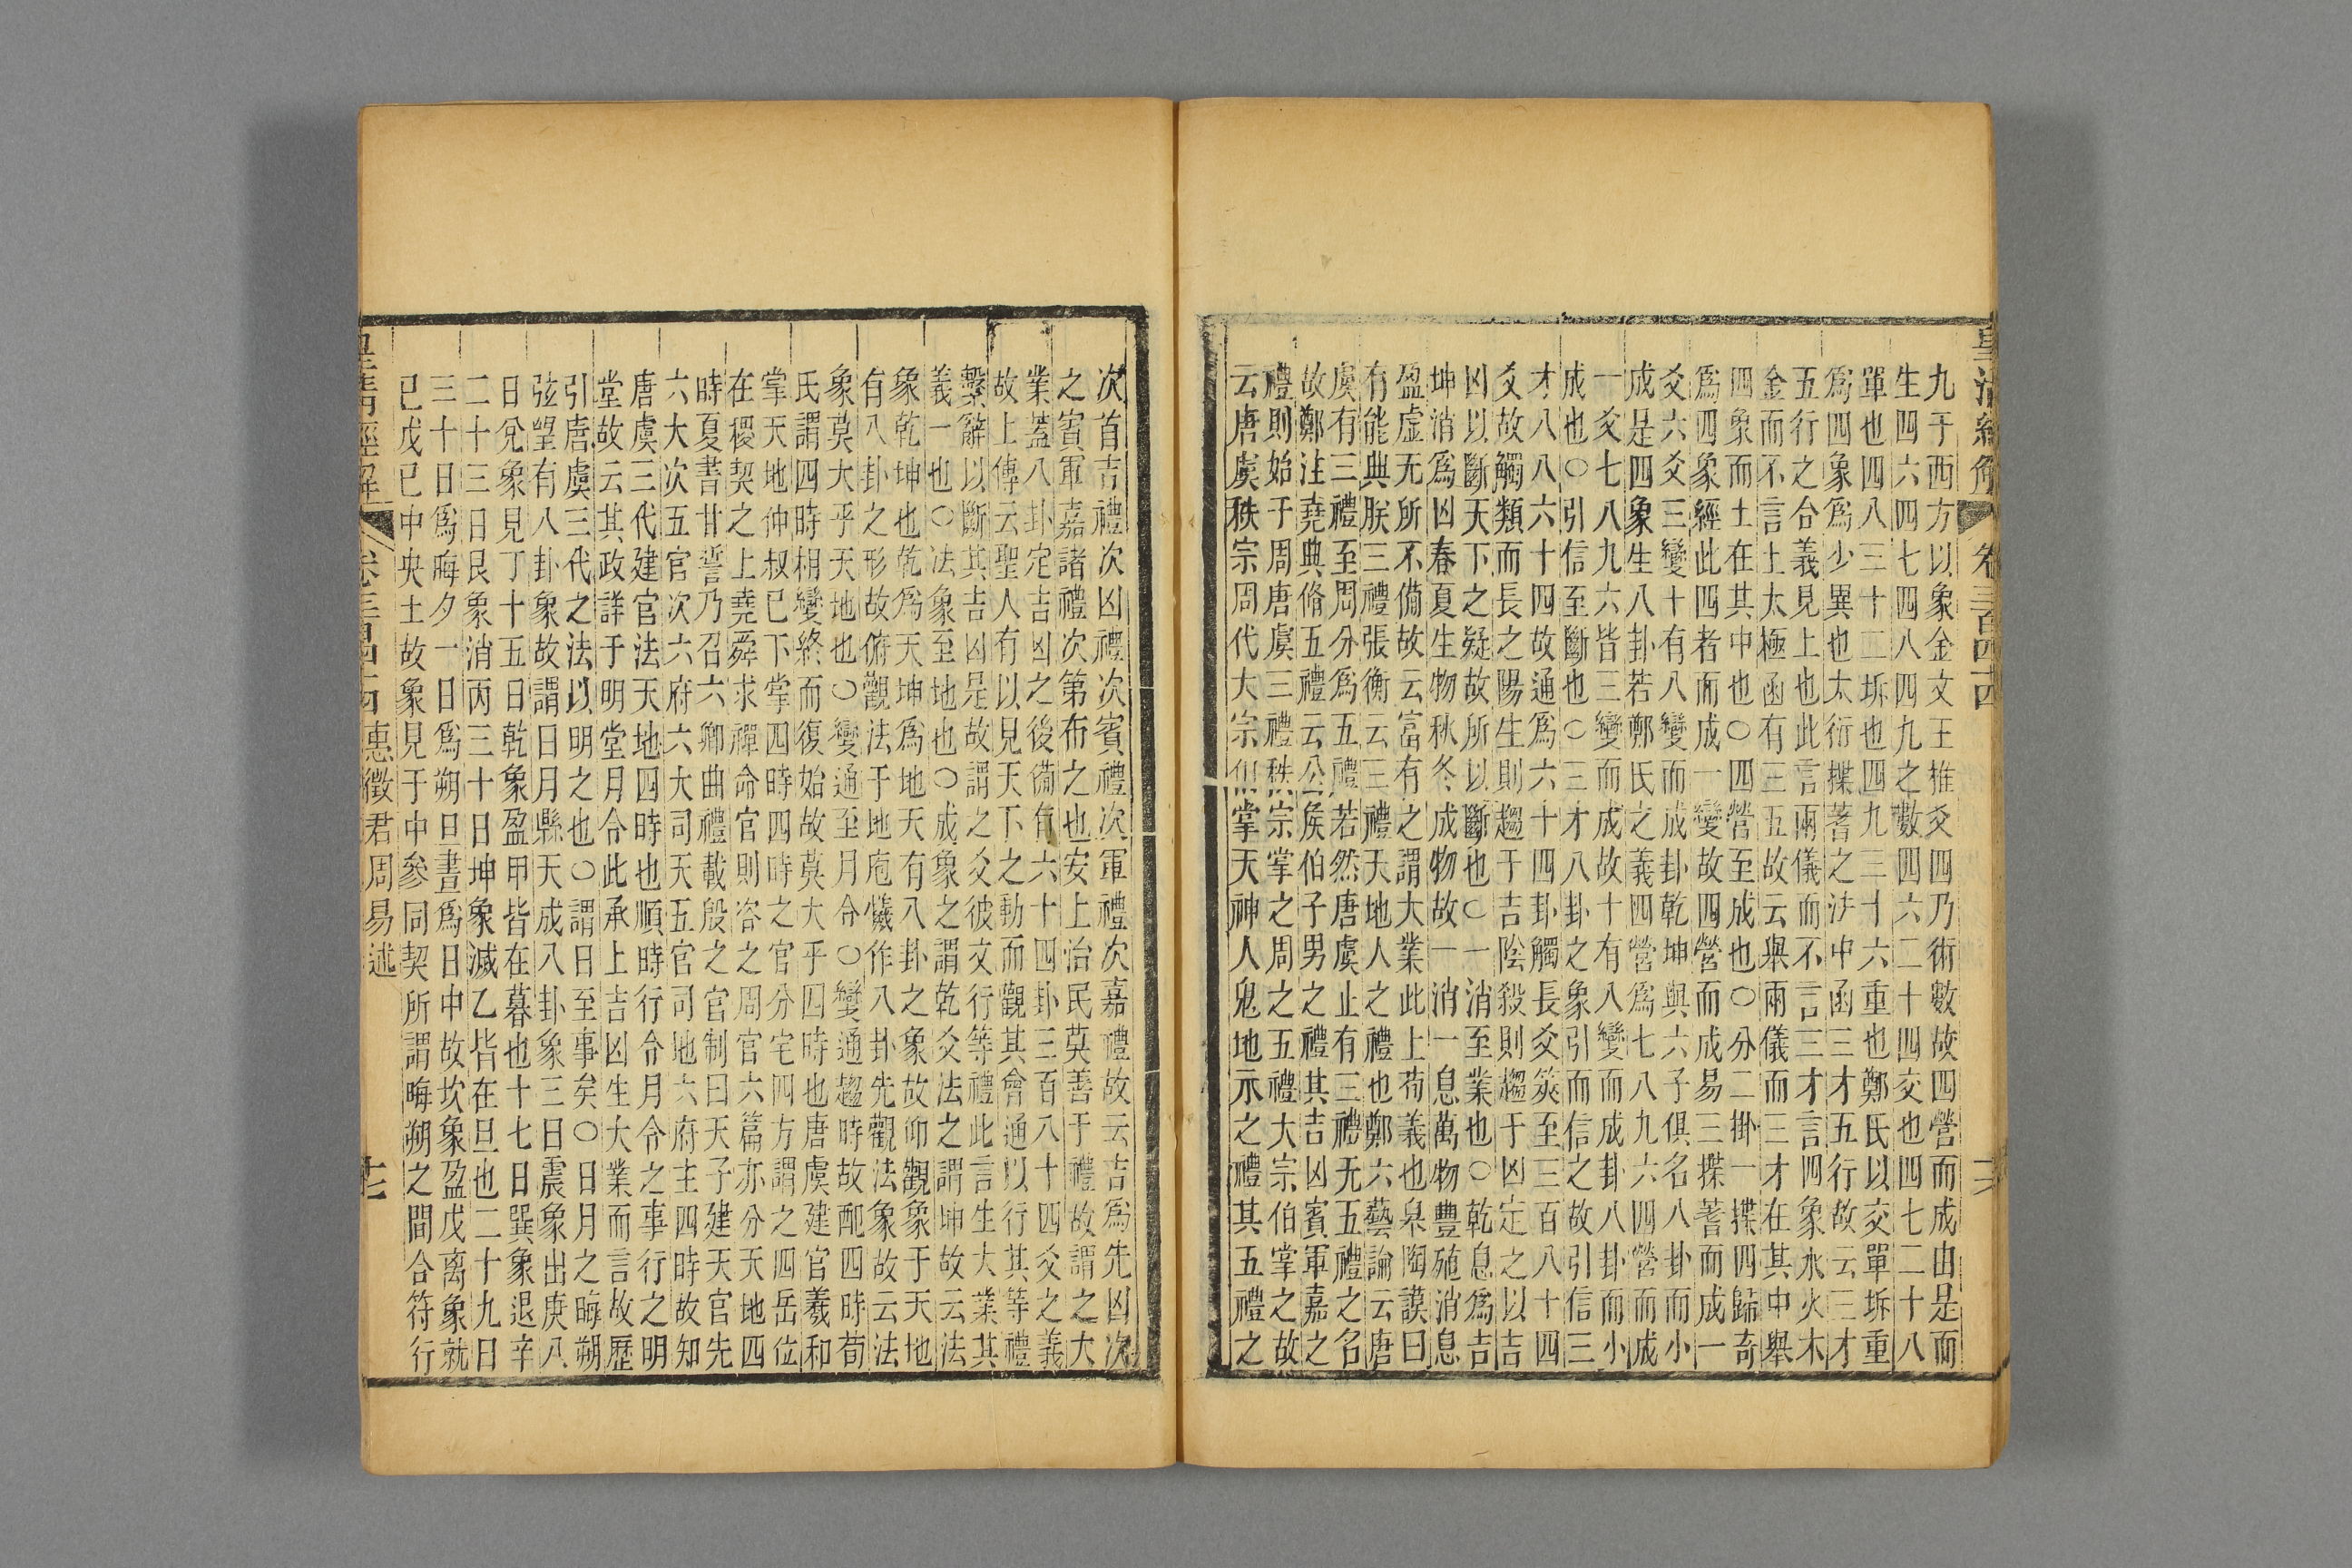 皇清經解 卷三百四十四
九于西方以象金文王推爻四乃術數故四營而成由是而
生四六四七四八四九之數四六二十四交也四七二十八
單也四八三十二坼也四九三十六重也鄭氏以交單坼重
爲四象爲少異也太衍揲蓍之法中函三才五行故云三才
五行之合義見上也此言兩儀而不言三才言四象水火木
金而不言土太極函有三五故云舉兩儀而三才在其中舉
四象而土在其中也〇四營至成也〇分二掛一揲四歸奇
爲四象經此四者而成一變故四營而成易三揲蓍而成一
爻六爻三變十有八變而成卦乾坤與六子俱名八卦而小
成是四象生八卦若鄭氏之義四營爲七八九六四營而成
一爻七八九六皆三變而成故十有八變而成卦八卦而小
成也〇引信至斷也〇三才八卦之象引而信之故引信三
才八八六十四故通爲六十四卦觸長爻筴至三百八十四
爻故觸類而長之陽生則趨于吉陰殺則趨于凶定之以吉
凶以斷天下之疑故所以斷也〇一消至業也〇乾息爲吉
坤消爲凶春夏生物秋冬成物故一消一息萬物豐殖消息
盈虛无所不備故云富有之謂大業此上荀義也臯陶謨曰
有能典朕三禮張衡云三禮天地人之禮也鄭六藝論云唐
虞有三禮至周分爲五禮若然唐虞止有三禮无五禮之名
故鄭注堯典脩五禮云公矦伯子男之禮其吉凶賓軍嘉之
禮則始于周唐虞三禮秩宗掌之周之五禮大宗伯掌之故
云唐虞秩宗周代大宗俱掌天神人鬼地示之禮其五禮之
次首吉禮次凶禮次賓禮次軍禮次嘉禮故云吉爲先凶次
之賓軍嘉諸禮次第布之也安上治民莫善于禮故謂之大
業蓋八卦定吉凶之後備有六十四卦三百八十四爻之義
故上傳云聖人有以見天下之動而觀其會通以行其等禮
繫辭以斷其吉凶是故謂之爻彼文行等禮此言生大業其
義一也〇法象至地也〇成象之謂乾爻法之謂坤故云法
象乾坤也乾爲天坤爲地天有八卦之象故仰觀象于天地
有八卦之形故俯觀法于地庖犧作八卦先觀法象故云法
象莫大乎天地也〇變通至月令〇變通趨時故配四時荀
氏謂四時相變終而復始故莫大乎四時也唐虞建官羲和
掌天地仲叔已下掌四時四時之官分宅四方謂之四岳位
在稷契之上堯舜求禪命官則咨之周官六篇亦分天地四
時夏書甘誓乃召六卿曲禮載殷之官制曰天子建天官先
六大次五官次六府六大司天五官司地六府主四時故知
唐虞三代建官法天地四時也順時行令月令之事行之明
堂故云其政詳于明堂月令此承上吉凶生大業而言故歷
引唐虞三代之法以明之也〇謂日至事矣〇日月之晦朔
弦望有八卦象故謂日月縣天成八卦象三日震象出庚八
日兌象見丁十五日乾象盈甲皆在暮也十七日巽象退辛
二十三日艮象消丙三十日坤象滅乙皆在旦也二十九日
三十日爲晦夕一日爲朔旦晝爲日中故坎象盈戊离象就
已戊已中央土故象見于中參同契所謂晦朔之間合符行
皇清經解 卷三百四十四 惠徵君周易述